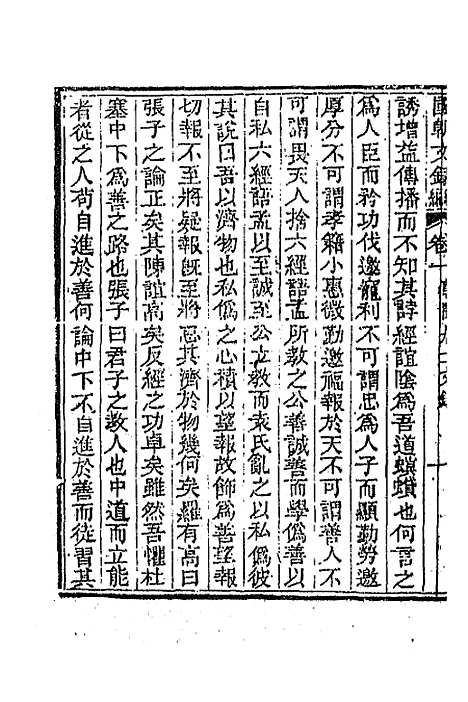 國朝文錄續　卷十
誘增益傳播而不知其誖經誼陰為吾道螟螣也何言之
為人臣而矜功伐邀寵利不可謂忠為人子而顯勤勞邀
厚分不可謂孝籍小惠微勤邀福報於天不可謂善人不
可謂畏天人捨六經語孟所教之公善誠善而學偽善以
自私六經語孟以至誠至公立教而袁氏亂之以私偽彼
其說曰吾以濟物也私偽之心積以望報故飾為善望報
切報不至將疑報既至將怠其濟於物幾何矣羅有高曰
張子之論正矣其陳誼高矣反經之功卓矣雖然吾懼杜
塞中下為善之路也張子曰君子之教人也中道而立能
者從之人苟自進於善何論中下不自進於善而從習其